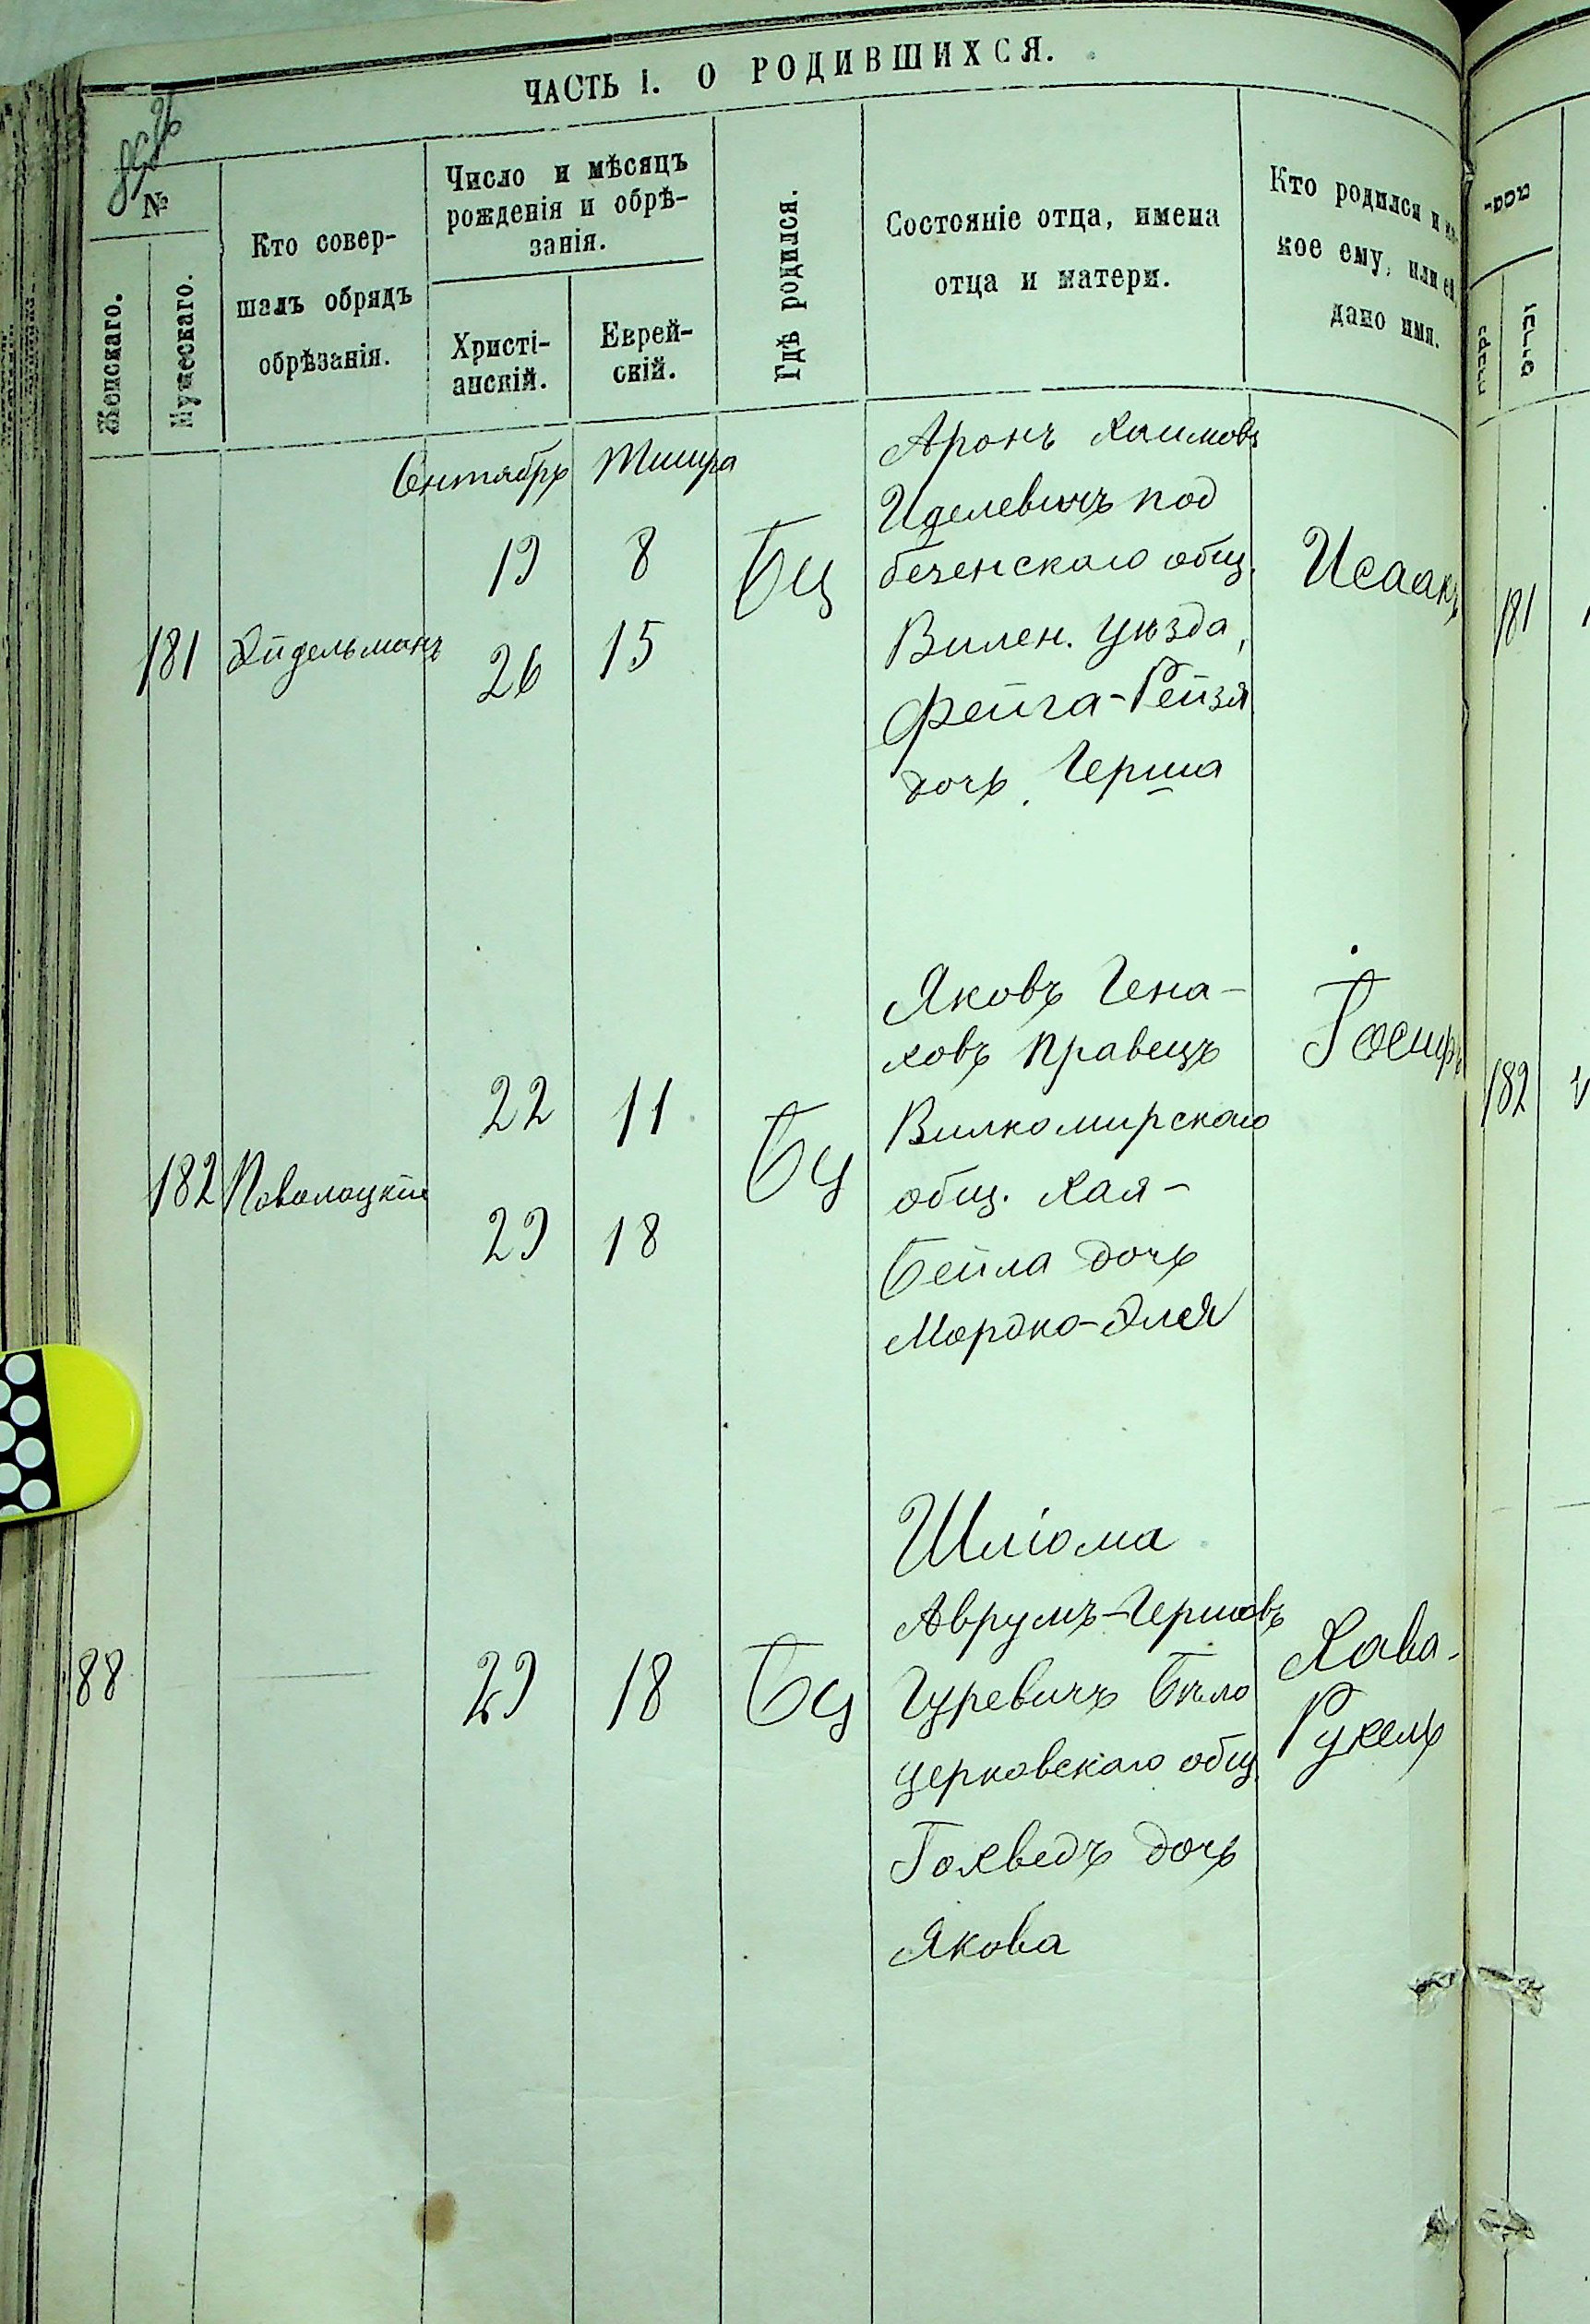 ЧАСТЬ I. О РОДИВШИХСЯ.
№
Женскаго.
Мужескаго.
Кто совер-
шалъ обрядъ
обрѣзанія.
Число и мѣсяцъ
рожденія и обрѣ-
занія.
Христі-
анскій.
Еврей-
скій.
Гдѣ родился.
Состояніе отца, имена
отца и матери.
Кто родился и ка-
кое ему, или ей
дано имя.
Сентябрь Тишра
181 Эйдельманъ
19 8
26 15
Бц
Аронъ Хаимовъ
Иделевичъ под
безенскаго общ.
Вилен. уѣзда,
Фейга-Рейзя
дочь Герша
Исаакъ
181
182 Поволоцкій
22 11
29 18
Бц
Яковъ Гена-
ховъ Правецъ
Вилкомирскаго
общ. Хая-
Бейла дочь
Мордхо-Эля
Іосифъ
182
88
29 18
Бц
Шліома
Аврумъ-Гершовъ
Гуревичъ Бѣло
церковскаго общ.
Іохведъ дочь
Якова
Хава-
Рухель